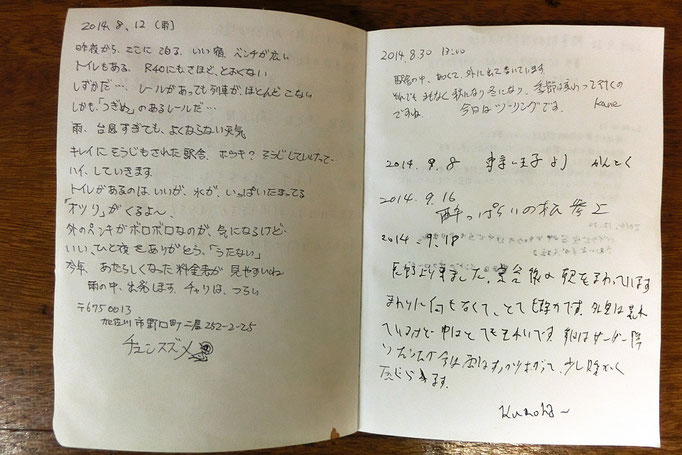 2014.8.12 (雨)
昨夜から、ここに泊る、いい宿、ベンチが広い
トイレもある、R40にもさほど、とおくない
しずかだ… レールがあっても列車が、ほとんどこない
しかも「つぎめ」のあるレールだ…
雨、台風すぎても、よくならない天気
キレイにそうじもされた駅舎、ホウキ? そうじしていけって…
ハイ、していきます
トイレがあるのは、いいが、水が、いっぱいたまってる
「オツリ」がくるよ〜、
外のベンチがボロボロなのが、気になるけど…
いい、ひと夜をありがとう、「うたない」
今年、あたらしくなった料金表が見やすいね
雨の中、出発します、チャリは、つらい
〒6750013
加古川市野口町二屋252-2-25
チュンスズメ
2014.8.30 13:00
駅舎の中、あつくて、外に出て書いています
それでもまもなく秋になり冬になり、季節は変わって行くの
ですね。 今日はツーリングです。 Kane
2014.9.8 王子より かんとく
2014.9.16
酔っぱらいの松 参上
2014.9.18
より来ました。 の駅をまわっています
まわりに何もなくて、とても静かです。外見は荒れ
ているけど中はとてもきれいです。朝はサンダー降
今は雨はすっかり上がって、少し暖かく
感じられます。